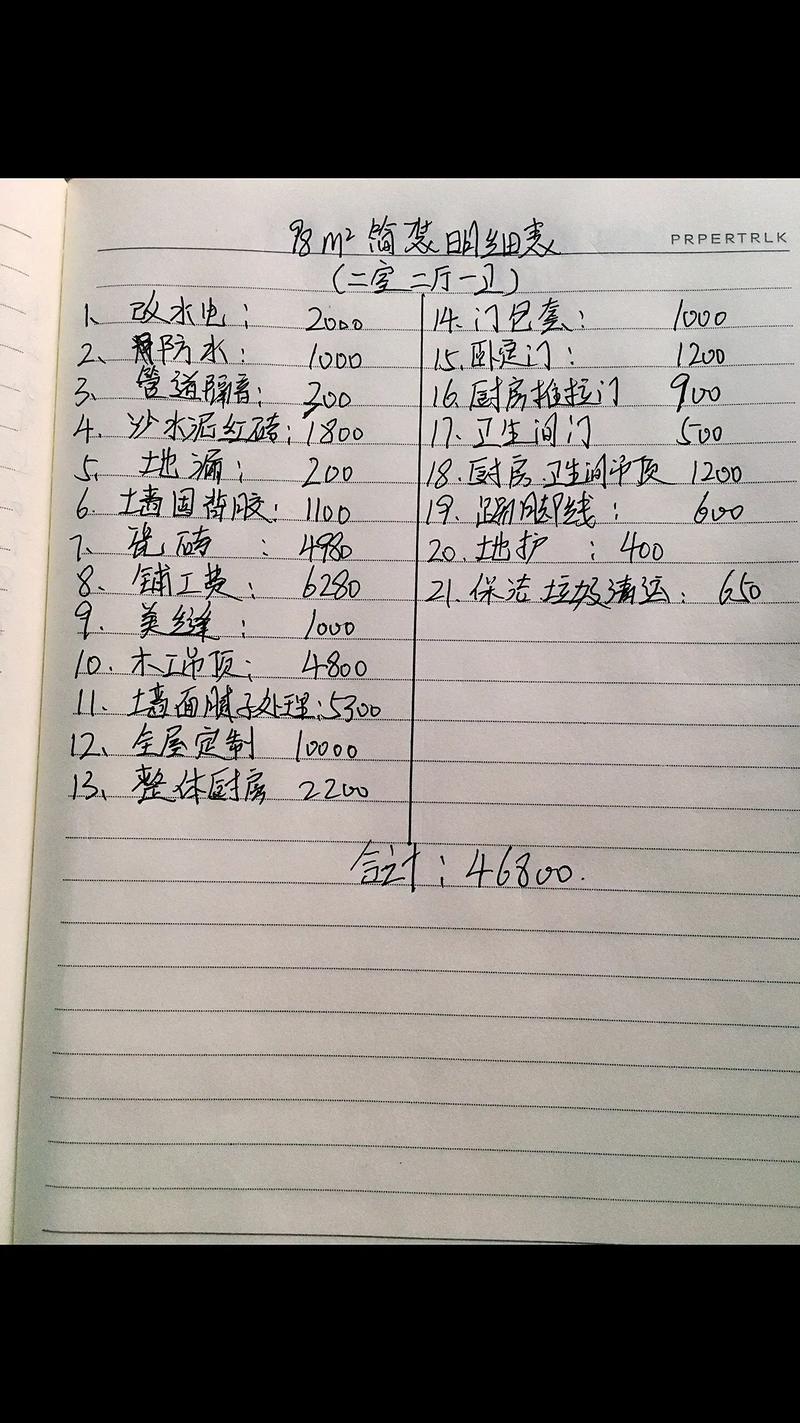 98m²简装明细表
PRPERTRLK
(二室二厅一卫)
1、改水电: 2000
2、防水: 1000
3、管道隔音: 300
4、沙水泥红砖: 1800
5、地漏: 200
6、墙固背胶: 1100
7、瓷砖: 4980
8、铺工费: 6280
9、美缝: 1000
10.木工吊顶: 4800
11.墙面腻子处理: 5300
12、全屋定制 10000
13、整体厨房 2200
14.门包套: 1000
15.卧室门: 1200
16.厨房推拉门 900
17.卫生间门 500
18.厨房.卫生间吊顶 1200
19、踢脚线: 600
20.地护: 400
21.保洁垃圾清运: 650
合计: 46800.